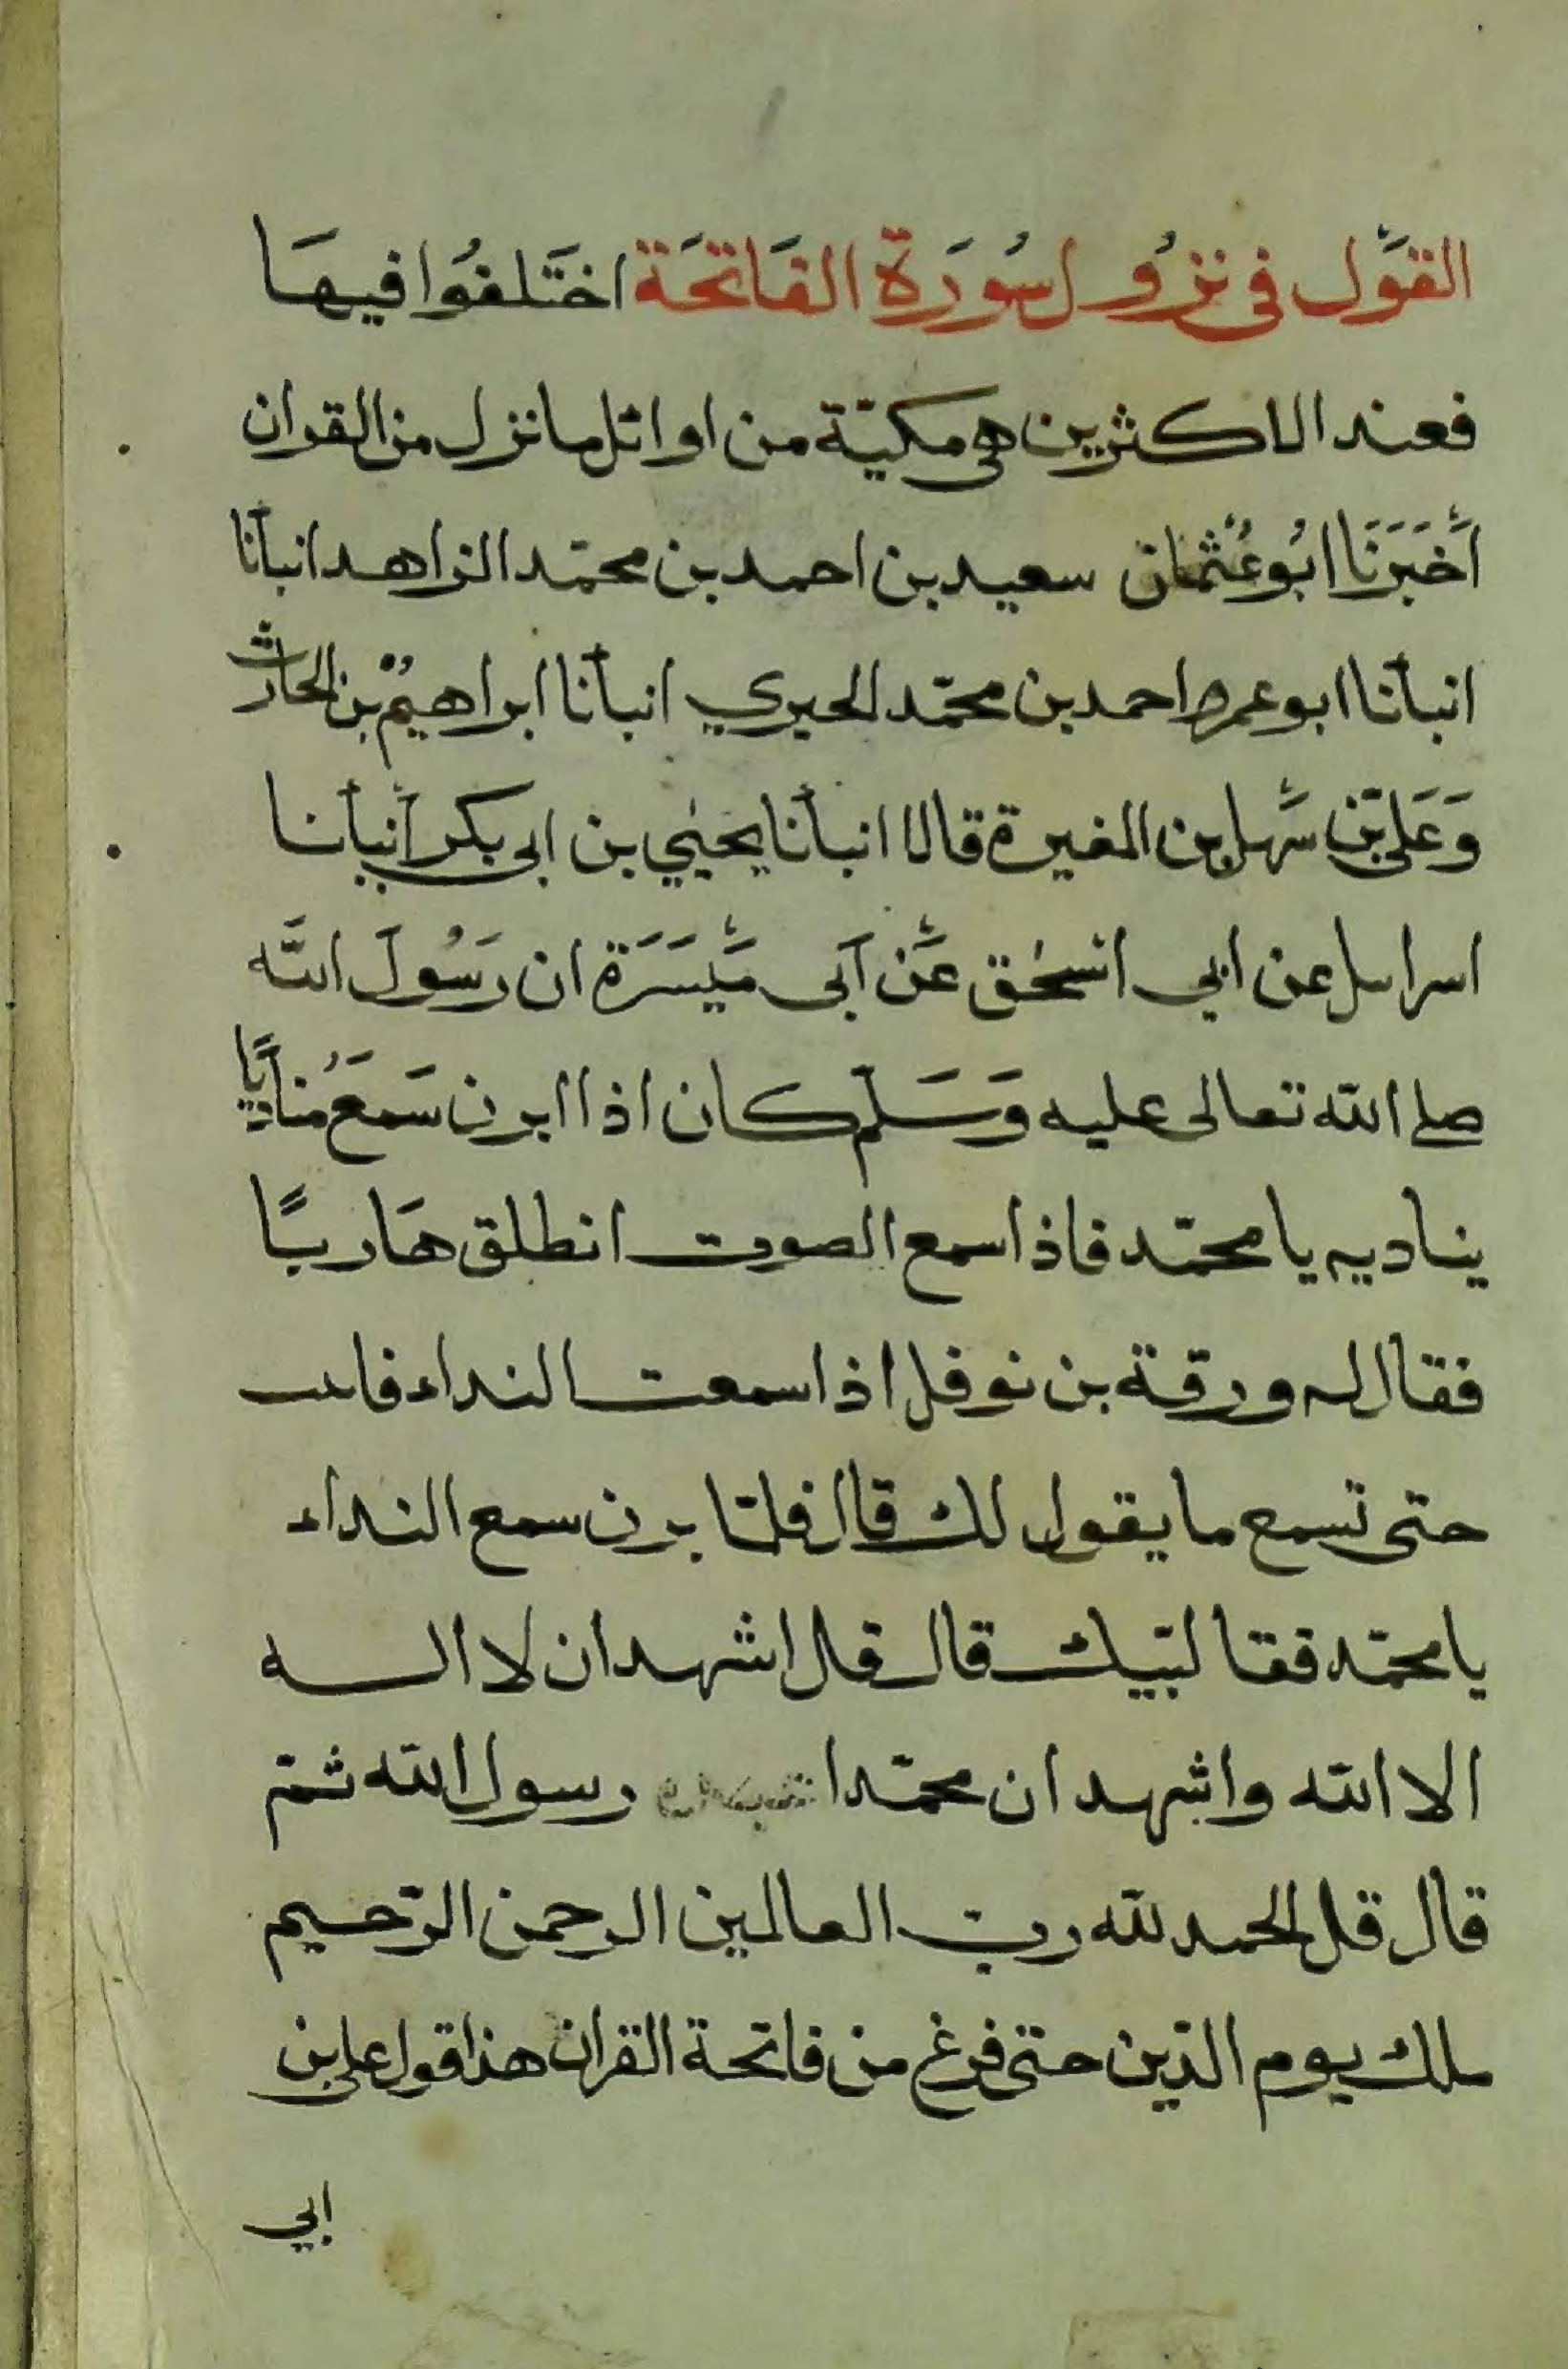 القَوْل فى نزُول سُورَة الفَاتحَة اختَلفُوا فيهَا
فعند الاكثرين هى مكيّة من اوائل ما نزل من القران
أَخْبَرَنَا ابُو عُثْمان سعيد بن احمد بن محمّد الزاهد انبأنا
انبأنا ابو عمرو احمد بن محمّد الحيري انبأنا ابراهيمُ بن الحارث
وَعَلى بْن سَهْل بن المغيرة قالا انبأنا يحيٰي بن ابى بكر أَنبأنا
اسرايىل عن ابي اسحٰق عَنْ اَبى مَيْسَرَة ان رَسُولَ اللَّه
صلى الله تعالى عليه وَسَلّم كان اذا ابرن سَمعَ مُناديًا
يناديه يا محمّد فاذا سمع الصوت انطلق هَاربًا
فقال له ورقة بن نوفل اذا سمعت النداء فاىىت
حتى تسمع ما يقول لك قال فلمّا برن سمع النداء
يا محمّد فقا لبّيك قال قل اشهد ان لا اله
الا الله واشهد ان محمّدا رسول الله ثمّ
قال قل الحمد لله ربّ العالمين الرحمن الرّحيم
ملك يوم الدّين حتى فرغ من فاتحة القران هذا قول على بن
ابي